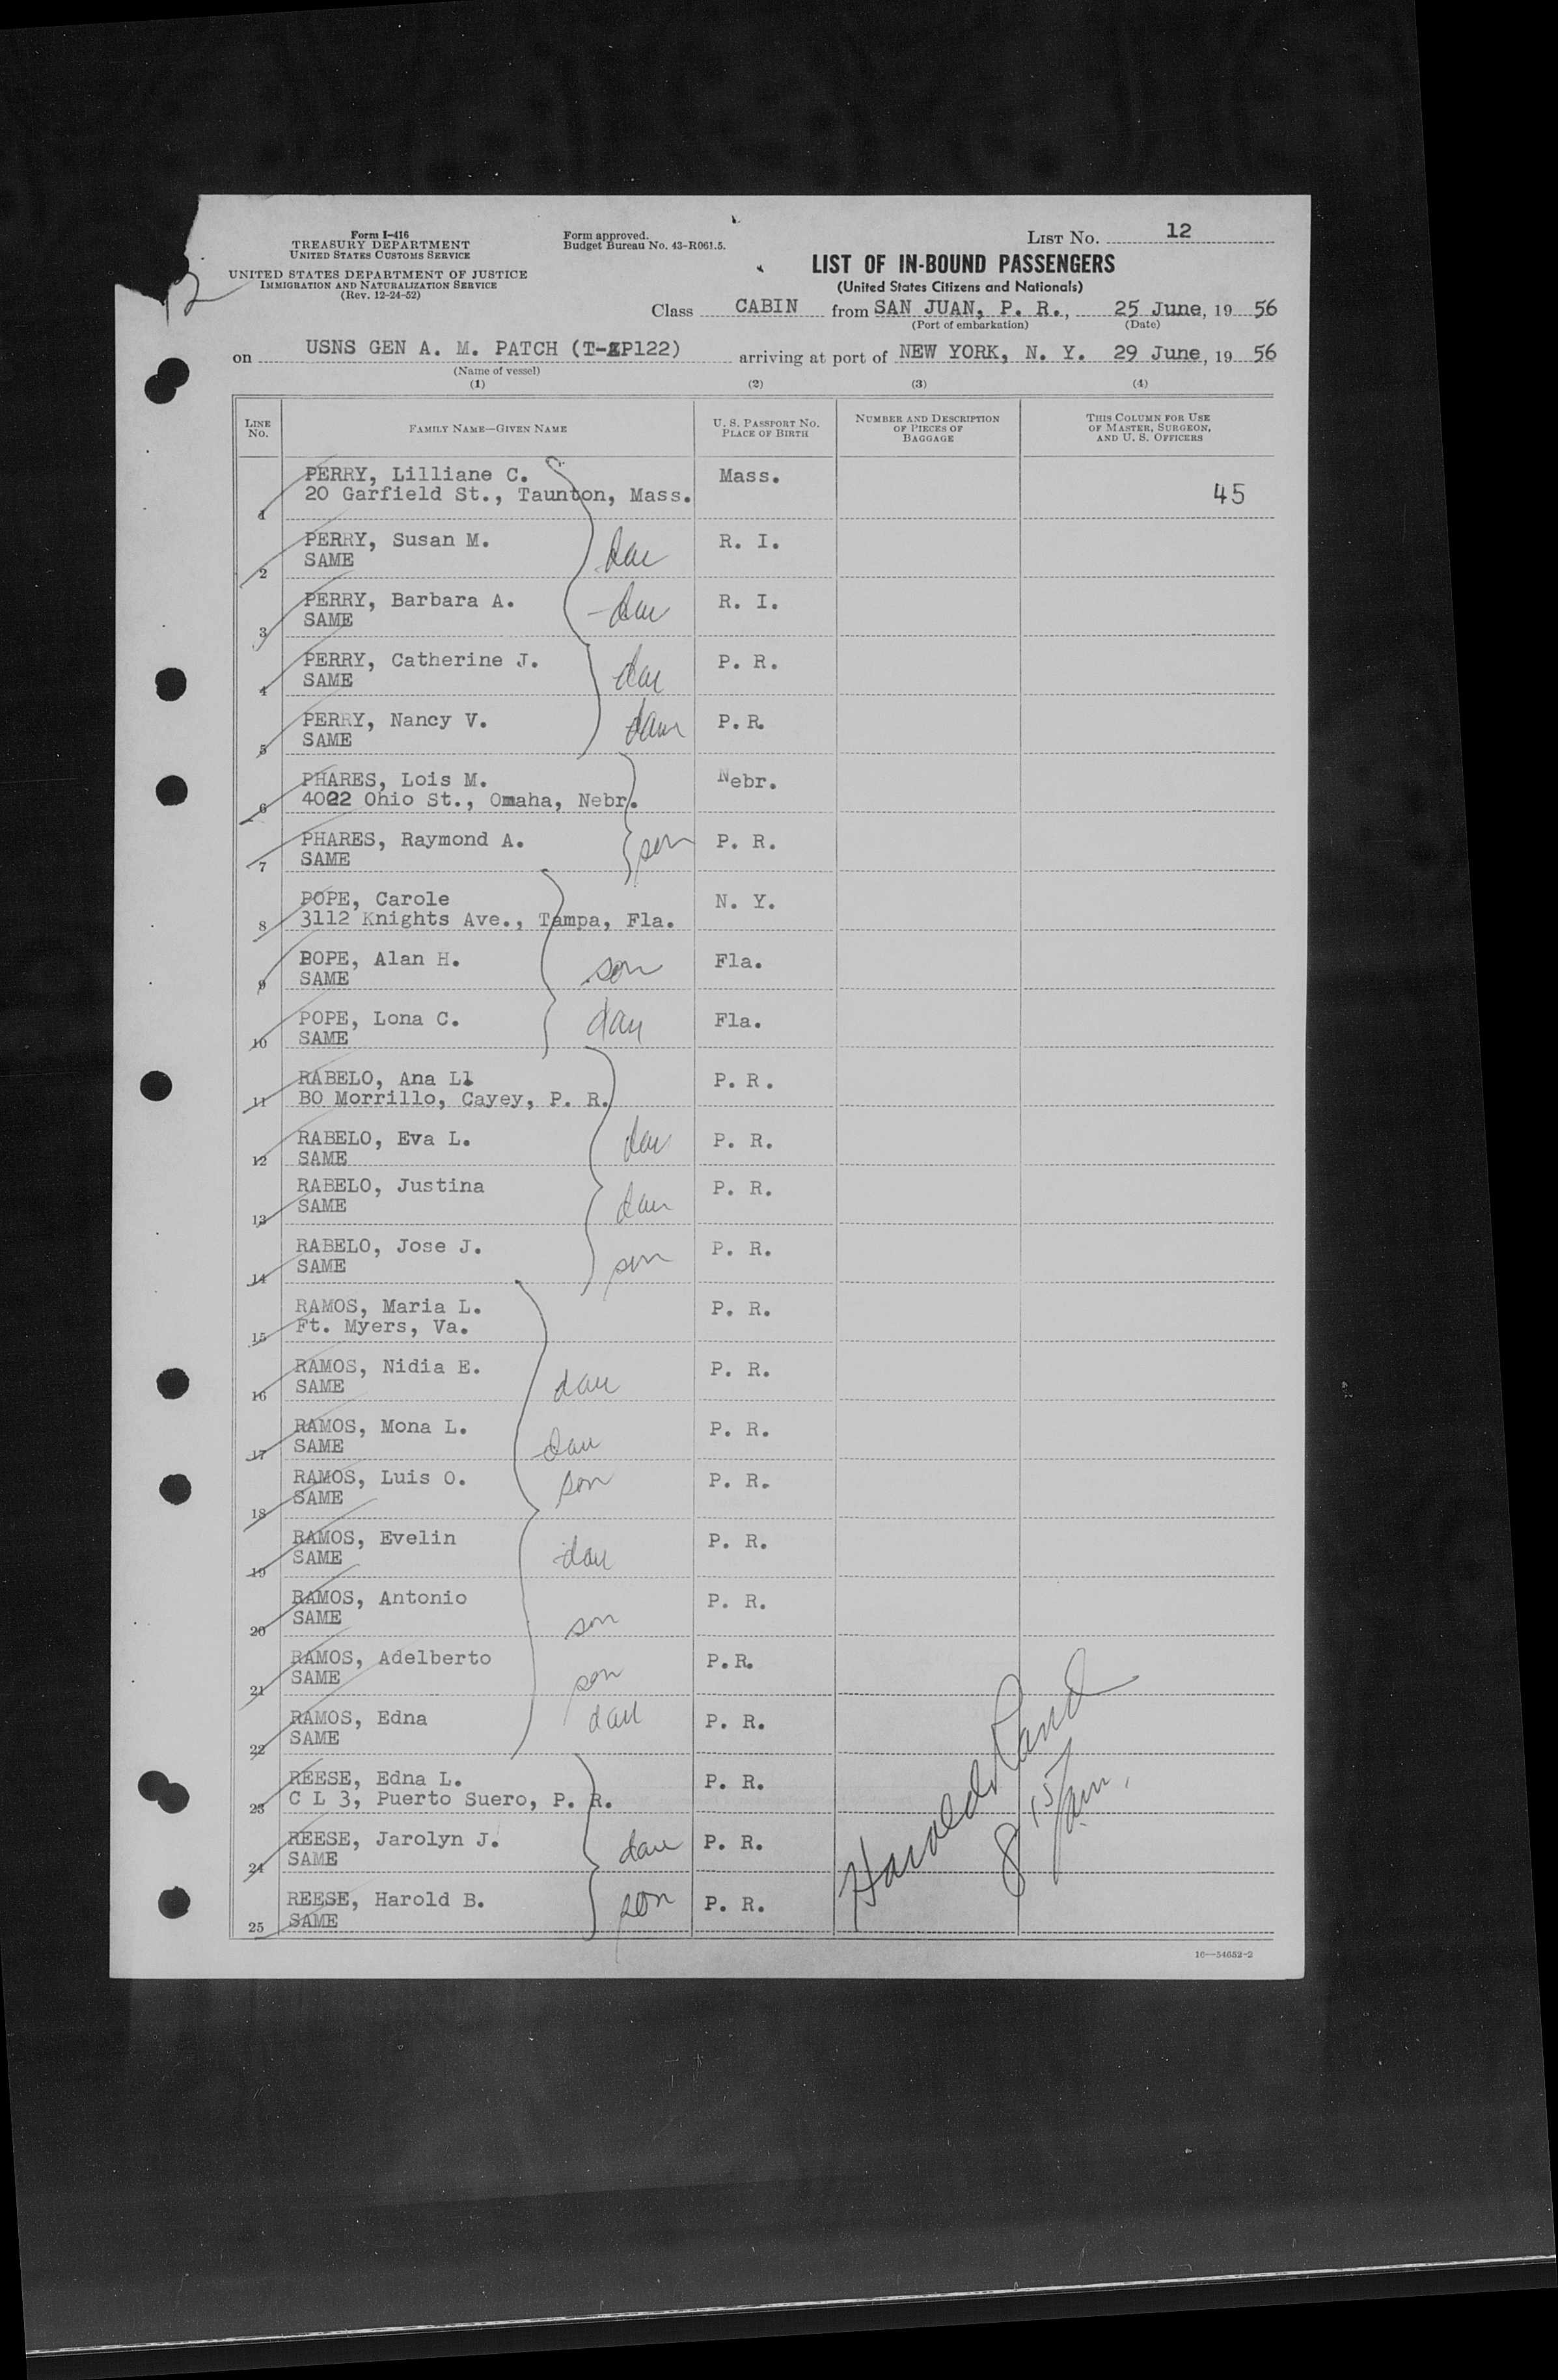 Form I-416
TREASURY DEPARTMENT
UNITED STATES CUSTOMS SERVICE
UNITED STATES DEPARTMENT OF JUSTICE
IMMIGRATION AND NATURALIZATION SERVICE
(Rev. 12-24-52)
Form approved.
Budget Bureau No. 43-R061.5.
LIST NO. 12
LIST OF IN-BOUND PASSENGERS
(United States Citizens and Nationals)
Class CABIN from SAN JUAN, P. R., 25 June, 19 56
(Port of embarkation) (Date)
on USNS GEN A. M. PATCH (T-AP122) arriving at port of NEW YORK, N. Y. 29 June, 19 56
(Name of vessel)
(1) (2) (3) (4)
LINE NO. FAMILY NAME—GIVEN NAME U. S. PASSPORT NO. PLACE OF BIRTH NUMBER AND DESCRIPTION OF PIECES OF BAGGAGE THIS COLUMN FOR USE OF MASTER, SURGEON, AND U. S. OFFICERS
1 PERRY, Lilliane C. Mass.
20 Garfield St., Taunton, Mass. 45
2 PERRY, Susan M. dau R. I.
SAME
3 PERRY, Barbara A. dau R. I.
SAME
4 PERRY, Catherine J. dau P. R.
SAME
5 PERRY, Nancy V. dau P.R.
SAME
6 PHARES, Lois M. Nebr.
4022 Ohio St., Omaha, Nebr.
7 PHARES, Raymond A. son P. R.
SAME
8 POPE, Carole N. Y.
3112 Knights Ave., Tampa, Fla.
9 POPE, Alan H. son Fla.
SAME
10 POPE, Lona C. dau Fla.
SAME
11 RABELO, Ana L. P.R.
BO Morrillo, Cayey, P. R.
12 RABELO, Eva L. dau P. R.
SAME
13 RABELO, Justina dau P. R.
SAME
14 RABELO, Jose J. son P. R.
SAME
15 RAMOS, Maria L. P. R.
Ft. Myers, Va.
16 RAMOS, Nidia E. dau P. R.
SAME
17 RAMOS, Mona L. dau P. R.
SAME
18 RAMOS, Luis O. son P. R.
SAME
19 RAMOS, Evelin dau P. R.
SAME
20 RAMOS, Antonio son P. R.
SAME
21 RAMOS, Adelberto son P.R.
SAME
22 RAMOS, Edna dau P. R.
SAME
23 REESE, Edna L. P. R.
C L 3, Puerto Suero, P. R.
24 REESE, Jarolyn J. dau P. R.
SAME
25 REESE, Harold B. son P. R.
SAME
Harold Rand
8 15/am.
16—54652-2